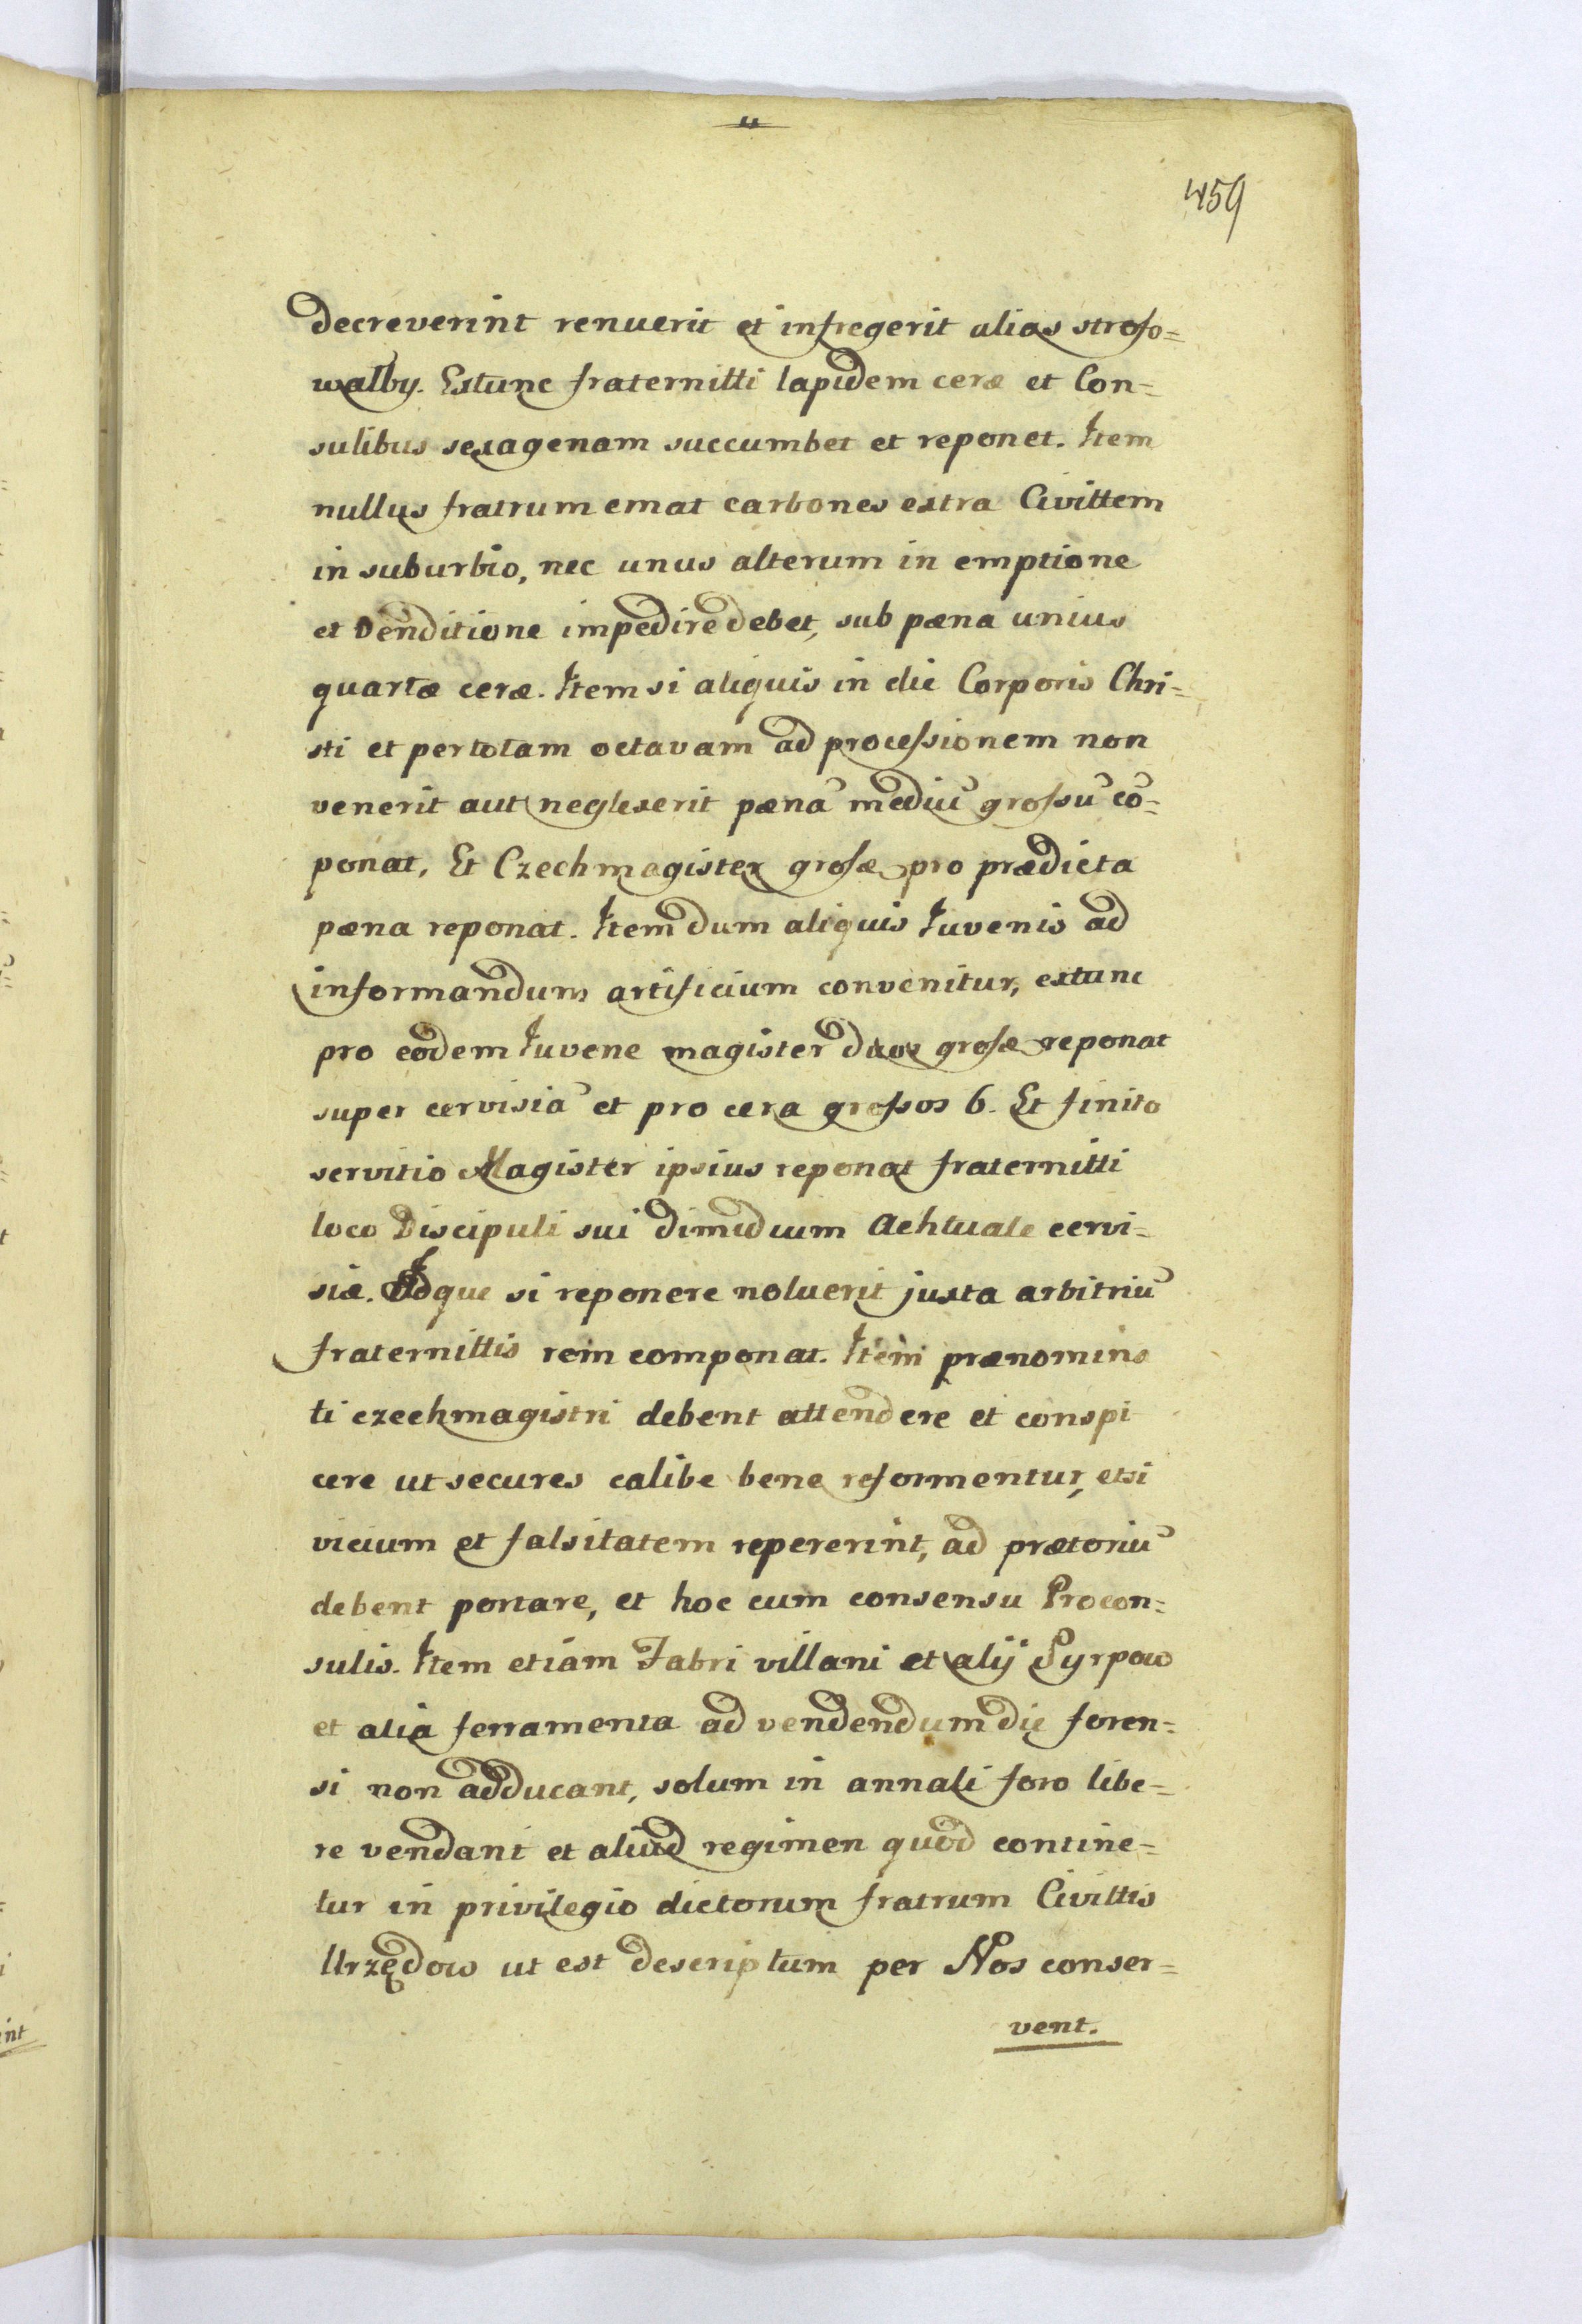 459
decreverint renuerit et infregerit alias strofo=
walby. Extunc fraternitti lapidem ceræ et Con=
sulibus sexagenam succumbet et reponet. Item
nullus fratrum emat carbones extra Civittem
in suburbio, nec unus alterum in emptione
et venditione impedire debet, sub pæna unius
quartæ ceræ. Item si aliquis in die Corporis Chri=
sti et per totam octavam ad processionem non
venerit aut neglexerit pænā mediū grossū cō=
ponat, Et Czechmagister grosæ pro prædicta
pæna reponat. Item dum aliquis Iuvenis ad
informandum artificium convenitur, extunc
pro eodem Iuvene magister duos grosæ reponat
super cervisiā et pro cera grossos 6. Et finito
servitio Magister ipsius reponat fraternitti
loco Discipuli sui dimidium Achtuale cervi=
siæ. Idque si reponere noluerit juxta arbitriū
fraternittis rem componat. Item prænomina
ti czechmagistri debent attendere et conspi
cere ut secures calibe bene reformentur, etsi
vicium et falsitatem repererint, ad prætoriū
debent portare, et hoc cum consensu Procon=
sulis. Item etiam Fabri villani et alij Syrpow
et alia ferramenta ad vendendum die foren=
si non adducant, solum in annali foro libe=
re vendant et aliud regimen quod contine=
tur in privilegio dictorum fratrum Civittis
Urzędow ut est descriptum per Nos conser=
vent.